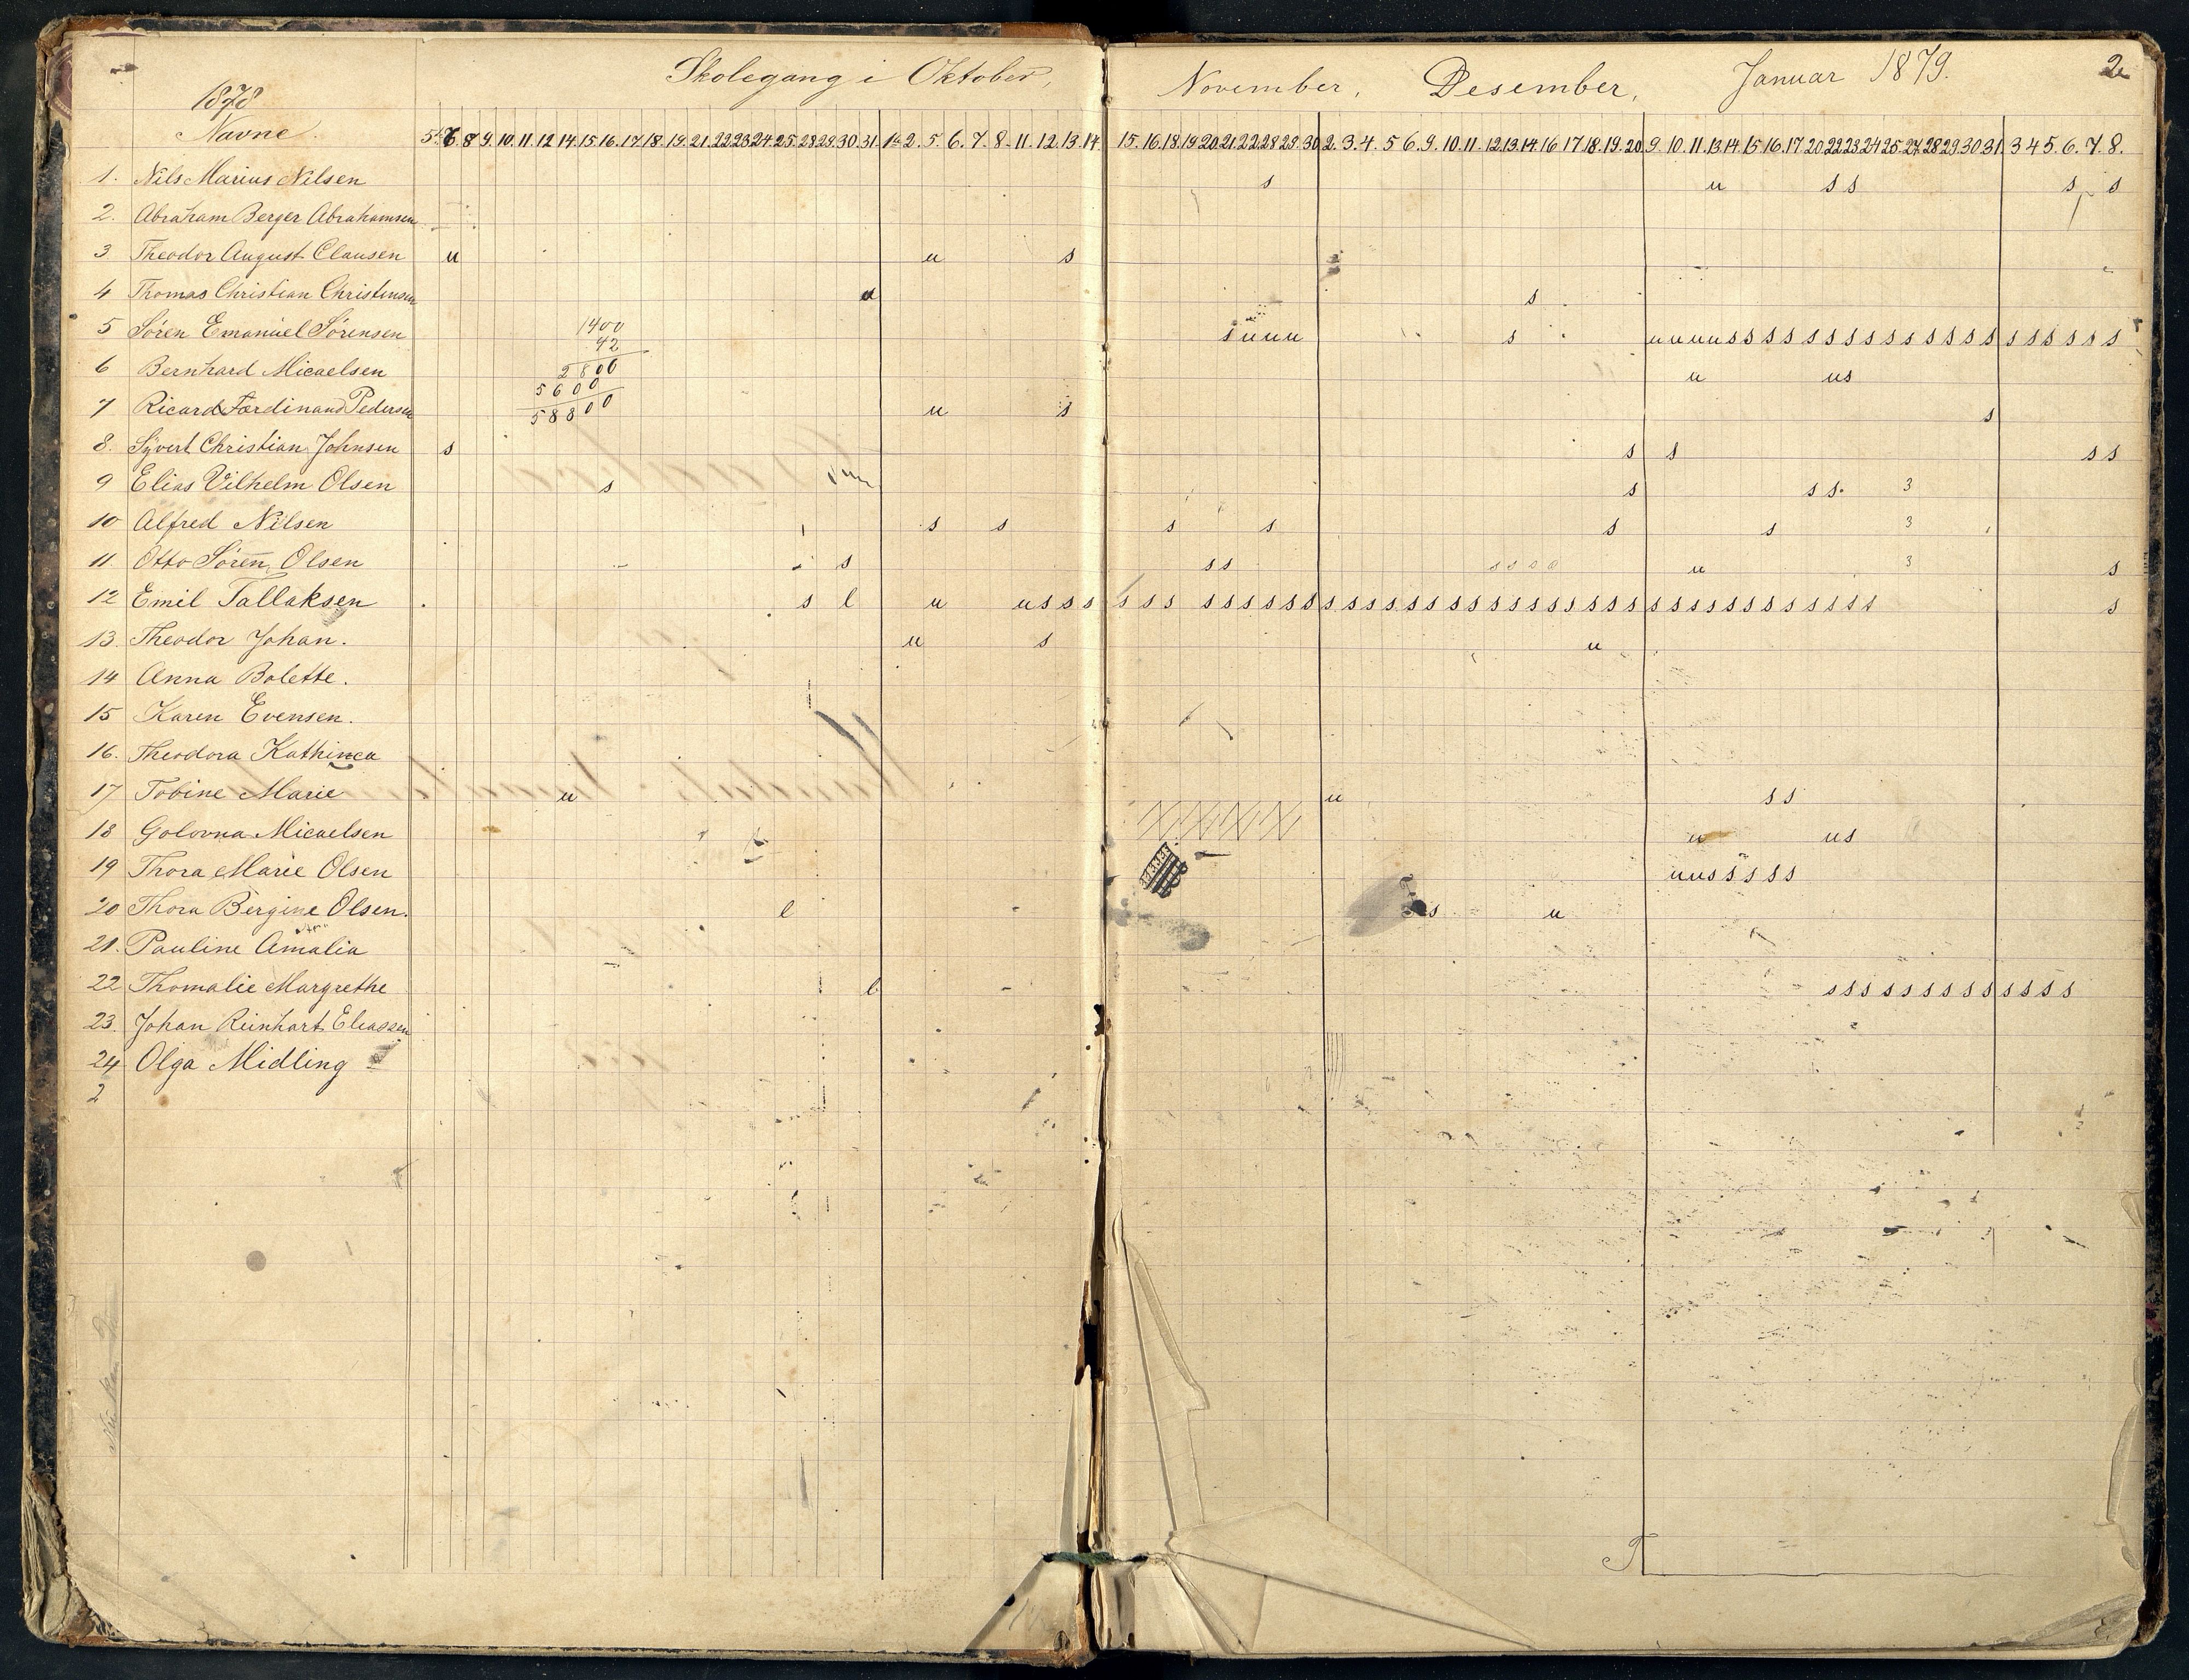 Skolegang i Oktober, November, Desember, Januar 1879. 2
1878
Navne.
5t 7. 8 9. 10. 11. 12 14. 15. 16. 17. 18. 19. 21. 22 23 24. 25. 28 29. 30. 31. 1ste 2. 5. 6. 7. 8. 11. 12. 13. 14 15. 16. 18. 19. 20. 21. 22. 28 29. 30 2. 3. 4. 5 6. 9. 10. 11. 12. 13. 14. 16 17. 18. 19. 20. 9. 10. 11. 13. 14. 15 16. 17 20. 22. 23. 24. 25. 27. 28. 29. 30. 31. 3 4 5. 6. 7. 8.
1. Nils Marius Nilsen s u s s s s
2. Abraham Berger Abrahamsen
3 Theodor August Clausen u u s
4 Thomas Christian Christensen s
5 Sören Emanuel Sörensen 1400 s u u u s u u u u s s s s s s s s s s s s s s s s s s s s
42
6 Bernhard Micaelsen 2800 u u s
5600
7 Ricard Ferdinand Pedersen 58800 u s s
8. Syvert Christian Johnsen s s s s s
9 Elias Vilhelm Olsen s s s s. 3
10 Alfred Nilsen s s s s s s 3
11. Otto Sören Olsen s s s s s u 3 s
12 Emil Tallaksen s l u u s s s s s s s s s s s s s s s s s s s s s s s s s s s s s s s s s s s s s s s s s
13. Theodor Johan. u s u
14 Anna Bolette.
15 Karen Evensen.
16. Theodora Kathinca
17 Tobine Marie u u s s
18 Golovna Micaelsen u u s
19 Thora Marie Olsen u u s s s s s
20 Thora Bergine Olsen. l s u
21. Pauline Amalia
22 Thomalie Margrethe l s s s s s s s s s s s s s
23. Johan Reinhart Eliassen
24 Olga Midling
2